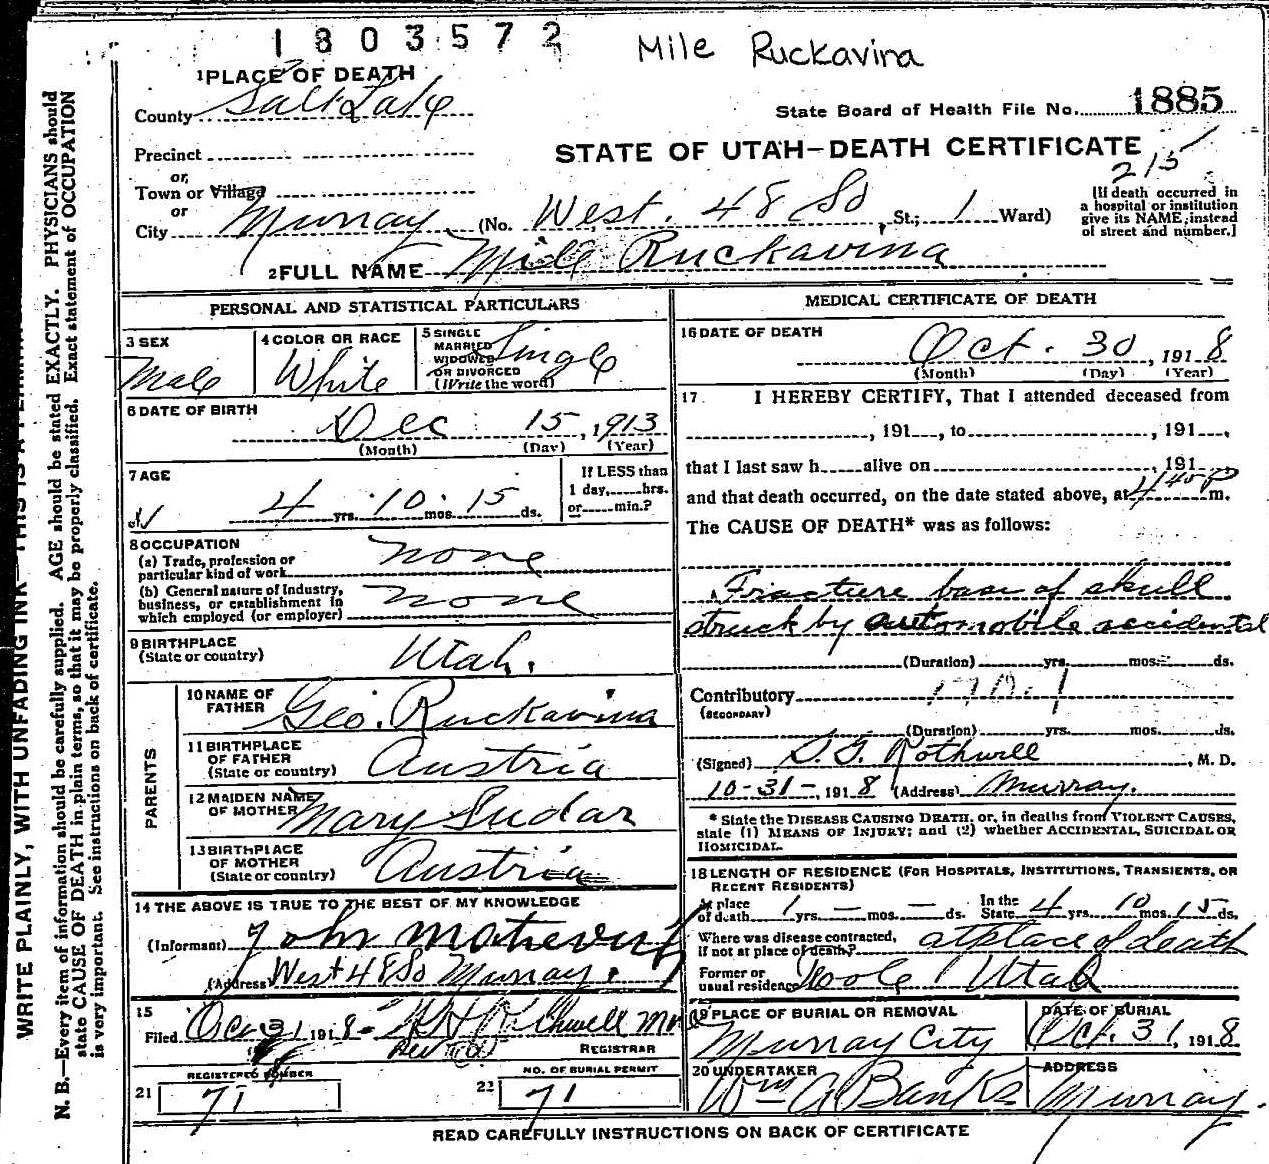 1803572
Mile Ruckavina
1 PLACE OF DEATH
County Salt Lake
State Board of Health File No. 1885
Precinct
STATE OF UTAH—DEATH CERTIFICATE
215
or
Town or Village
or
City Murray (No. West 48 So St.; 1 Ward)
[If death occurred in a hospital or institution give its NAME instead of street and number.]
2 FULL NAME Mile Ruckavina
PERSONAL AND STATISTICAL PARTICULARS
3 SEX
Male
4 COLOR OR RACE
White
5 SINGLE
MARRIED
WIDOWED
OR DIVORCED
(Write the word)
Single
6 DATE OF BIRTH
Dec 15, 1913
(Month) (Day) (Year)
7 AGE
4 yrs. 10 mos. 15 ds.
If LESS than
1 day, hrs.
or min.?
8 OCCUPATION
(a) Trade, profession or
particular kind of work none
(b) General nature of Industry,
business, or establishment in
which employed (or employer) none
9 BIRTHPLACE
(State or country) Utah.
PARENTS
10 NAME OF
FATHER Geo. Ruckavina
11 BIRTHPLACE
OF FATHER
(State or country) Austria
12 MAIDEN NAME
OF MOTHER Mary Sudar
13 BIRTHPLACE
OF MOTHER
(State or country) Austria
14 THE ABOVE IS TRUE TO THE BEST OF MY KNOWLEDGE
(Informant) John
(Address West 48 So Murray.
15
Filed. Oct 31 1918
REGISTRAR
REGISTERED NUMBER
21 71
NO. OF BURIAL PERMIT
22 71
MEDICAL CERTIFICATE OF DEATH
16 DATE OF DEATH
Oct. 30, 1918
(Month) (Day) (Year)
17. I HEREBY CERTIFY, That I attended deceased from
, 191 , to , 191 ,
that I last saw h alive on , 191
and that death occurred, on the date stated above, at 4 40 P m.
The CAUSE OF DEATH* was as follows:
Fracture base of skull
struck by automobile accidental
(Duration) yrs. mos. ds.
Contributory
(SECONDARY)
(Duration) yrs. mos. ds.
(Signed) Rothwell, M. D.
10-31-, 1918 (Address) Murray.
* State the DISEASE CAUSING DEATH, or, in deaths from VIOLENT CAUSES,
state (1) MEANS OF INJURY; and (2) whether ACCIDENTAL, SUICIDAL OR
HOMICIDAL.
18 LENGTH OF RESIDENCE (FOR HOSPITALS, INSTITUTIONS, TRANSIENTS, OR
RECENT RESIDENTS)
At place
of death 1 yrs. — mos. — ds. In the State 4 yrs. 10 mos. 15 ds.
Where was disease contracted,
if not at place of death? at place of death
Former or
usual residence Utah
19 PLACE OF BURIAL OR REMOVAL
Murray City
DATE OF BURIAL
Oct. 31, 1918
20 UNDERTAKER
Wm A Banks
ADDRESS
Murray.
READ CAREFULLY INSTRUCTIONS ON BACK OF CERTIFICATE
WRITE PLAINLY, WITH UNFADING INK—THIS IS A
N. B.—Every item of information should be carefully supplied. AGE should be stated EXACTLY. PHYSICIANS should
state CAUSE OF DEATH in plain terms, so that it may be properly classified. Exact statement of OCCUPATION
is very important. See instructions on back of certificate.